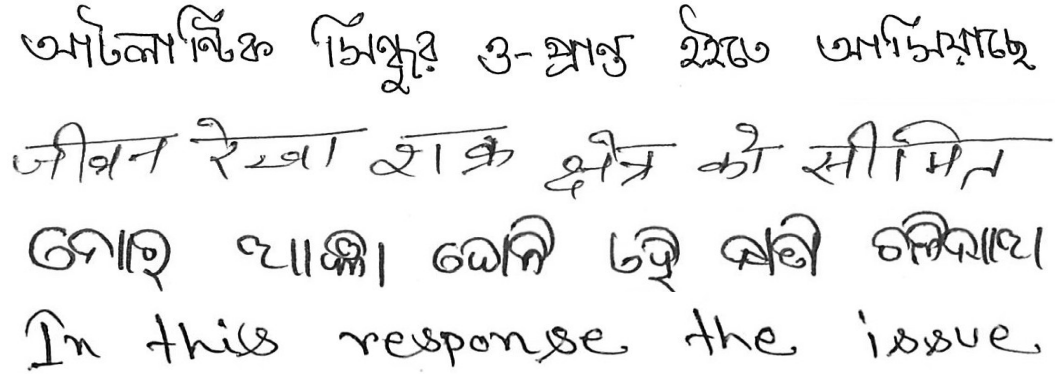 আটলান্টিক সিন্ধুর ও-প্রান্ত হইতে আসিয়াছে
जीवन रेखा शुक्र क्षेत्र को सीमित
ମୋର ବୋଲି ଏହି ଚାଲିଯାଆ
In this response the issue